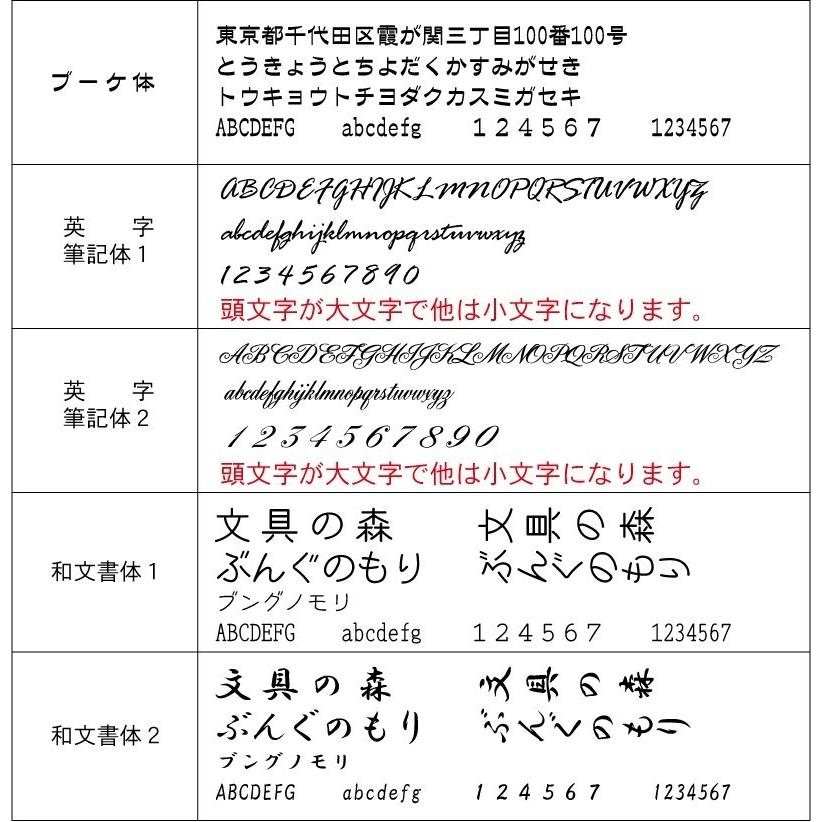 ブーケ体
東京都千代田区霞が関三丁目100番100号
とうきょうとちよだくかすみがせき
トウキョウトチヨダクカスミガセキ
ABCDEFG abcdefg １２４５６７ 1234567
英字
筆記体1
ABCDEFGHIJKLMNOPQRSTUVWXYZ
abcdefghijklmnopqrstuvwxyz
1234567890
頭文字が大文字で他は小文字になります。
英字
筆記体2
ABCDEFGHIJKLMNOPQRSTUVWXYZ
abcdefghijklmnopqrstuvwxyz
1234567890
頭文字が大文字で他は小文字になります。
和文書体1
文具の森 文具の森
ぶんぐのもり ぶんぐのもり
ブングノモリ
ABCDEFG abcdefg １２４５６７ 1234567
和文書体2
文具の森 文具の森
ぶんぐのもり ぶんぐのもり
ブングノモリ
ABCDEFG abcdefg １２４５６７ 1234567